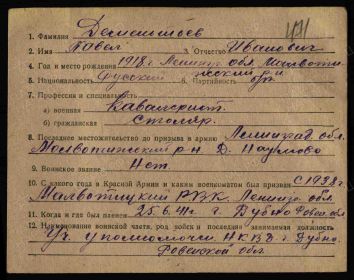 1. Фамилия Дементьев
2. Имя Павел 3. Отчество Иванович
4. Год и место рождения 1918 г. Ленинг. обл.
5. Национальность русский 6. Партийность б/п
7. Профессия и специальность
а) военная кавалерист
б) гражданская столяр.
8. Последнее местожительство до призыва в армию Ленинград. обл.
Молвотицкий р-н д. Наумово
9. Воинское звание Нет
10. С какого года в Красной Армии и каким военкоматом был призван с 1938 г.
Малвотицкий РВК. Ленингр. обл.
11. Когда и где был пленен 25.6.41 г г. Дубно Ровен. обл.
12. Наименование воинской части, род войск и последняя занимаемая должность
НКВД г. Дубно.
Ровенской обл.